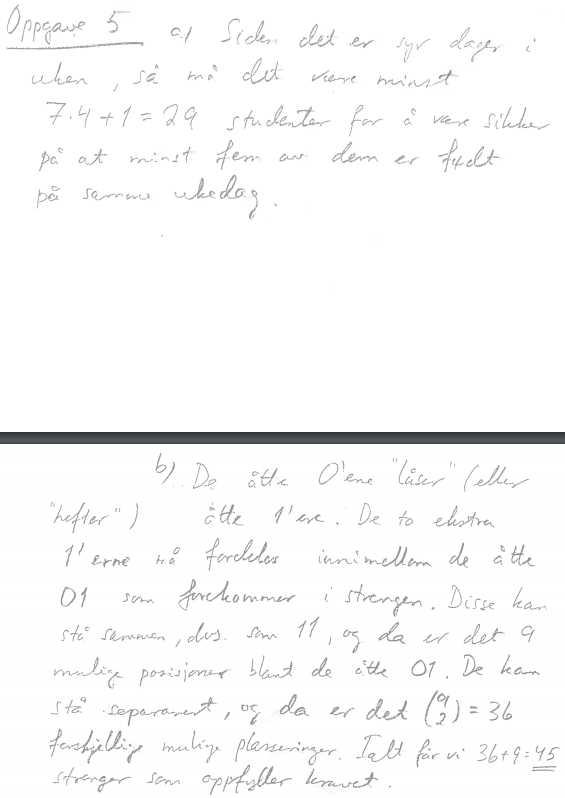 Oppgave 5 a) Siden det er syv dager i
uken, så må det være minst
7·4+1=29 studenter for å være sikker
på at minst fem av dem er født
på samme ukedag.
b) De åtte 0'ene "låser" (eller
"hefter") åtte 1'ere. De to ekstra
1'erne må fordeles innimellom de åtte
01 som forekommer i strengen. Disse kan
stå sammen, dvs. som 11, og da er det 9
mulige posisjoner blant de åtte 01. De kan
stå separarert, og da er det (9 2) = 36
forskjellige mulige plasseringer. Ialt får vi 36+9=45
strenger som oppfyller kravet.